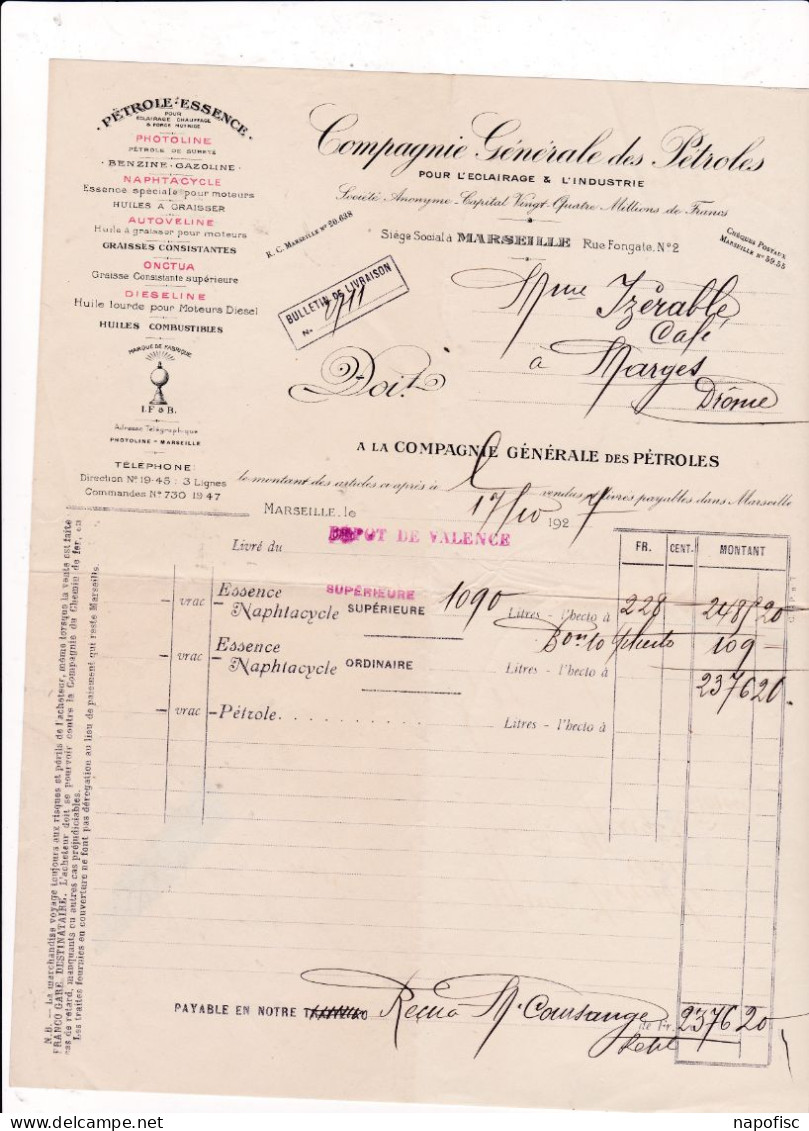 PÉTROLE-ESSENCE
POUR
ECLAIRAGE CHAUFFAGE
& FORCE MOTRICE
PHOTOLINE
PÉTROLE DE SURETÉ
BENZINE-GAZOLINE
NAPHTACYCLE
Essence spéciale pour moteurs
HUILES A GRAISSER
AUTOVELINE
Huile à graisser pour moteurs
GRAISSES CONSISTANTES
ONCTUA
Graisse Consistante supérieure
DIESELINE
Huile lourde pour Moteurs Diesel
HUILES COMBUSTIBLES
MARQUE DE FABRIQUE
I.F & B.
Adresse Télégraphique
PHOTOLINE - MARSEILLE
TÉLÉPHONE:
Direction Nº 19-45 : 3 Lignes
Commandes Nºs 730 19 47
Compagnie Générale des Pétroles
POUR L'ECLAIRAGE & L'INDUSTRIE
Société Anonyme - Capital Vingt-Quatre Millions de Francs
R. C. MARSEILLE Nº 20.638
Siège Social à MARSEILLE Rue Fongate, Nº 2
CHÈQUES POSTAUX
MARSEILLE Nº 59.55
BULLETIN DE LIVRAISON
No
Mme Izérable
Café
à Marges
Drôme
Doit
A LA COMPAGNIE GÉNÉRALE DES PÉTROLES
le montant des articles ci après à vendus et livrés payables dans Marseille
MARSEILLE, le 17/10 1927
Livré du DEPOT DE VALENCE
FR. CENT. MONTANT
vrac Essence SUPÉRIEURE
Naphtacycle SUPÉRIEURE 1090 Litres - l'hecto à 228 2485 20
Bon 10 f hecto 109 -
vrac Essence
Naphtacycle ORDINAIRE Litres - l'hecto à 2376 20
vrac Pétrole Litres - l'hecto à
N.B. — La marchandise voyage toujours aux risques et périls de l'acheteur, même lorsque la vente est faite
FRANCO GARE DESTINATAIRE. L'acheteur doit se pourvoir contre la Compagnie du Chemin de fer, en
cas de retard, manquants ou autres cas préjudiciables.
Les traites fournies en couverture ne font pas dérogation au lieu de paiement qui reste Marseille.
PAYABLE EN NOTRE Reçu M. Coursange de Fr. 2376 20
napofisc